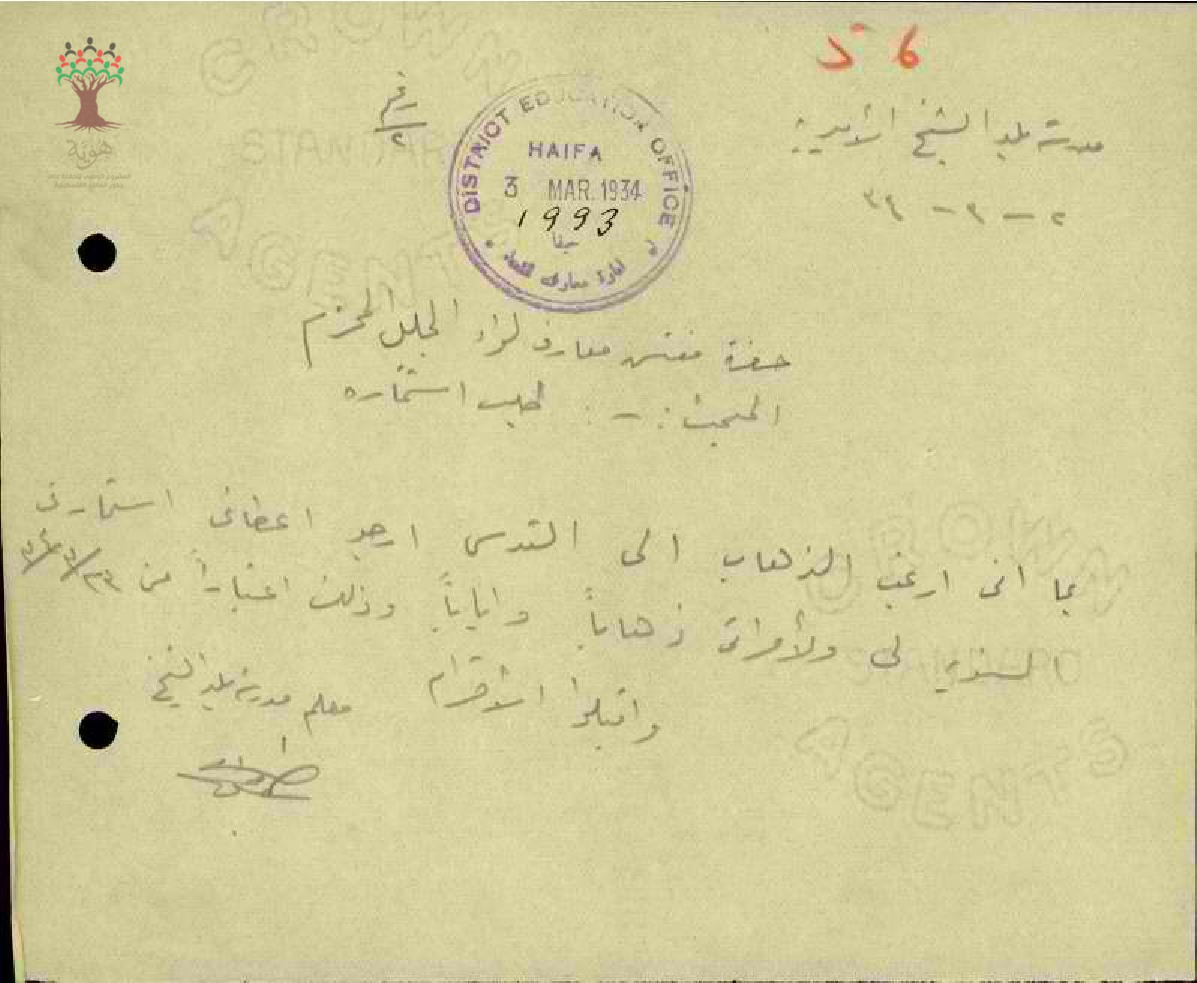 د 6
مدرسة بلد الشيخ الأميرية
٢ - ٣ - ٣٤
رقم
٢
DISTRICT EDUCATION OFFICE
HAIFA
3 MAR. 1934
1993
حيفا
ادارة معارف القضاء
حضرة مفتش معارف لواء الجليل المحترم
المبحث : - : طلب استمارة
بما اني ارغب الذهاب الى القدس ارجو اعطائي استمارتي
السفر لي ولأمرأتي ذهاباً واياباً وذلك اعتباراً من
واقبلوا الاحترام
معلم مدرسة بلد الشيخ
CROWN
STANDARD
AGENTS
CROWN
STANDARD
AGENTS
هوية